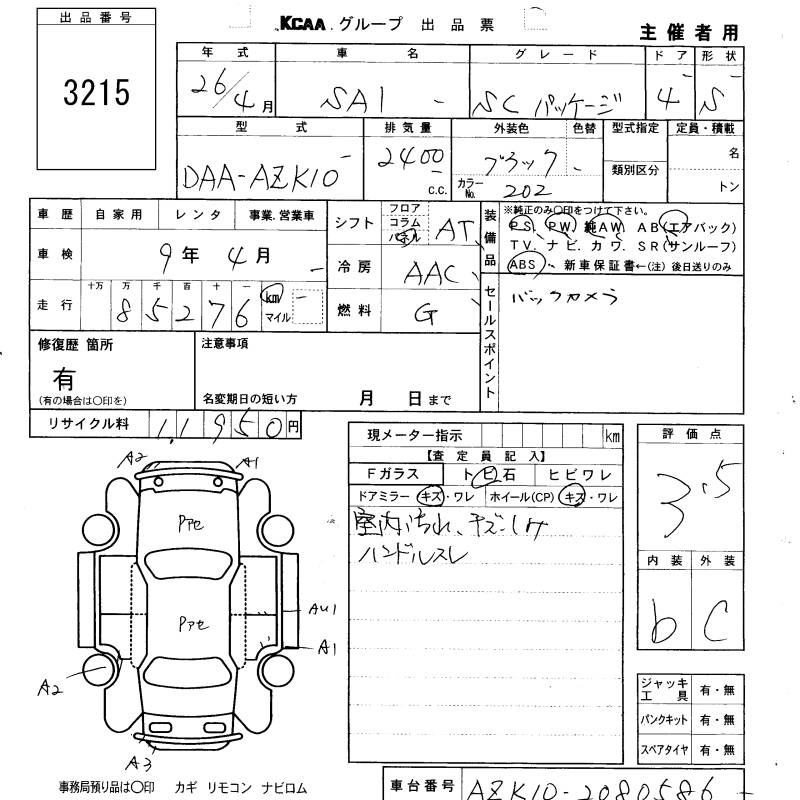 出品番号
3215
KCAA.グループ 出品票
主催者用
年式 車名 グレード ドア 形状
26/4月 SAI - SC パッケージ 4 S
型式 排気量 外装色 色替 型式指定 定員・積載
DAA-AZK10 2400 c.c. ブラック - 類別区分 名
カラーNo. 202 トン
車歴 自家用 レンタ 事業.営業車
車検 9年 4月 -
走行 十万 万 千 百 十 一
8 5 2 7 6 km マイル
シフト フロア コラム パネル AT
冷房 AAC
燃料 G
装備品
※純正のみ〇印をつけて下さい。
PS、PW、純AW、AB(エアバック)
TV、ナビ、カワ、SR(サンルーフ)
ABS、新車保証書←(注)後日送りのみ
セールスポイント
バックカメラ
修復歴 箇所
有
(有の場合は〇印を)
注意事項
名変期日の短い方 月 日まで
リサイクル料 11,950円
現メーター指示 km
【査定員記入】
Fガラス トビ石 ヒビワレ
ドアミラー キズ・ワレ ホイール(CP) キズ・ワレ
室内汚れ、キズ・シミ
ハンドルスレ
評価点
3.5
内装 外装
b C
A2 A1
Pアセ
Pアセ
AU1
A1
A2
A3
ジャッキ工具 有・無
パンクキット 有・無
スペアタイヤ 有・無
事務局預り品は〇印 カギ リモコン ナビロム
車台番号 AZK10-2080586